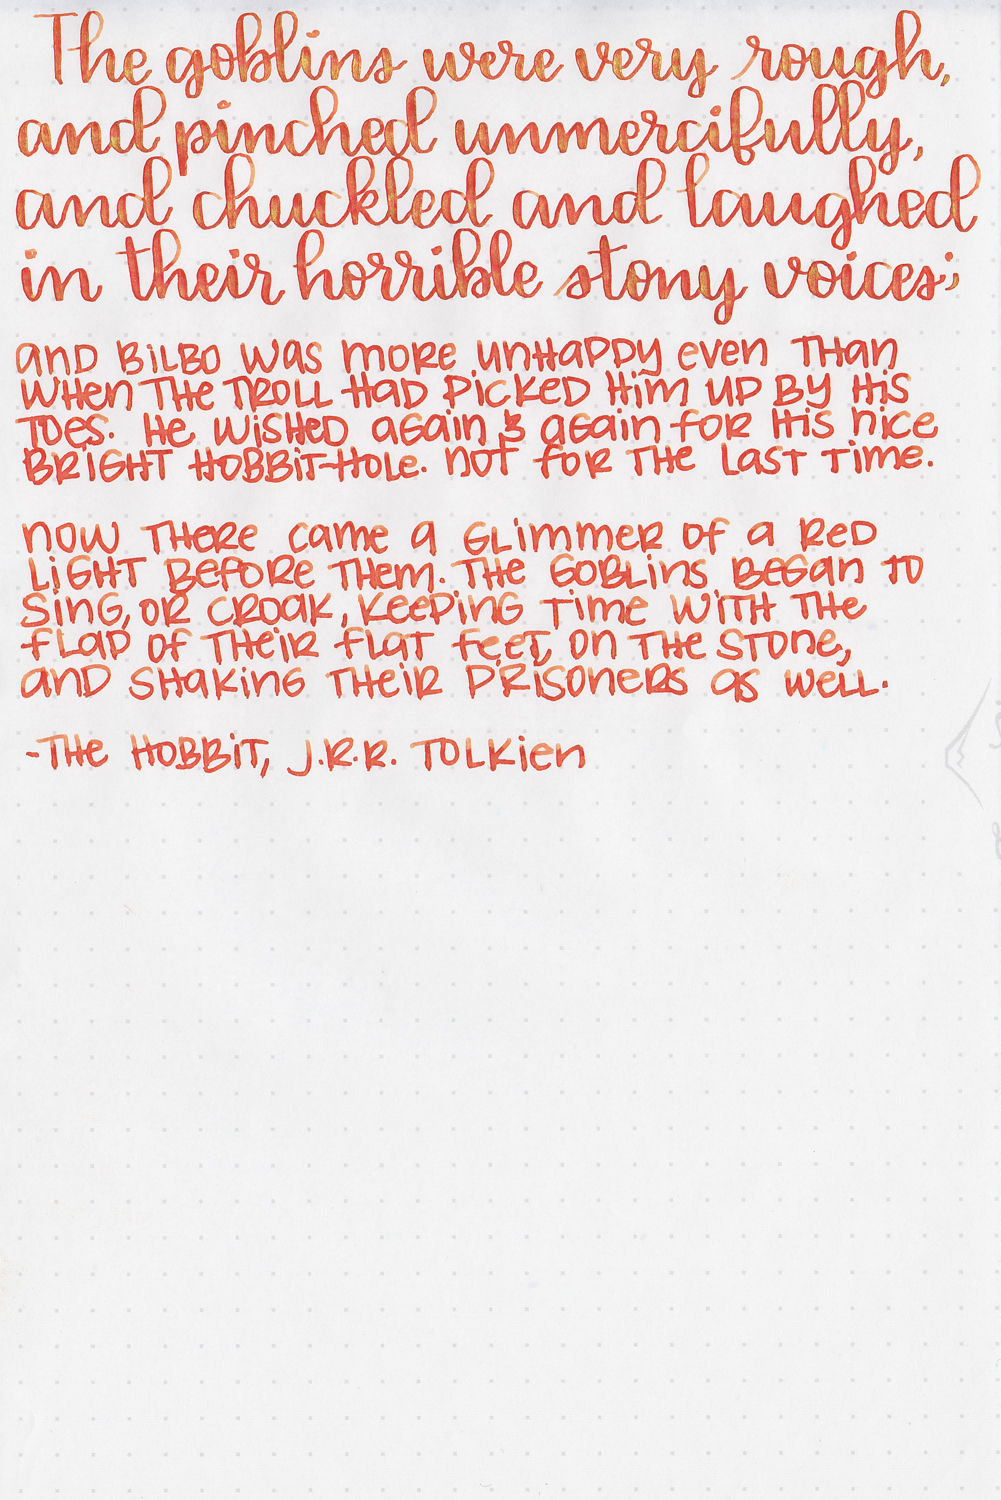 The goblins were very rough,
and pinched unmercifully,
and chuckled and laughed
in their horrible stony voices;
and Bilbo was more unhappy even than
when the troll had picked him up by his
toes. He wished again & again for his nice
bright hobbit-hole. not for the last time.
now there came a glimmer of a red
light before them. The goblins began to
sing, or croak, keeping time with the
flap of their flat feet on the stone,
and shaking their prisoners as well.
-The Hobbit, J.R.R. Tolkien